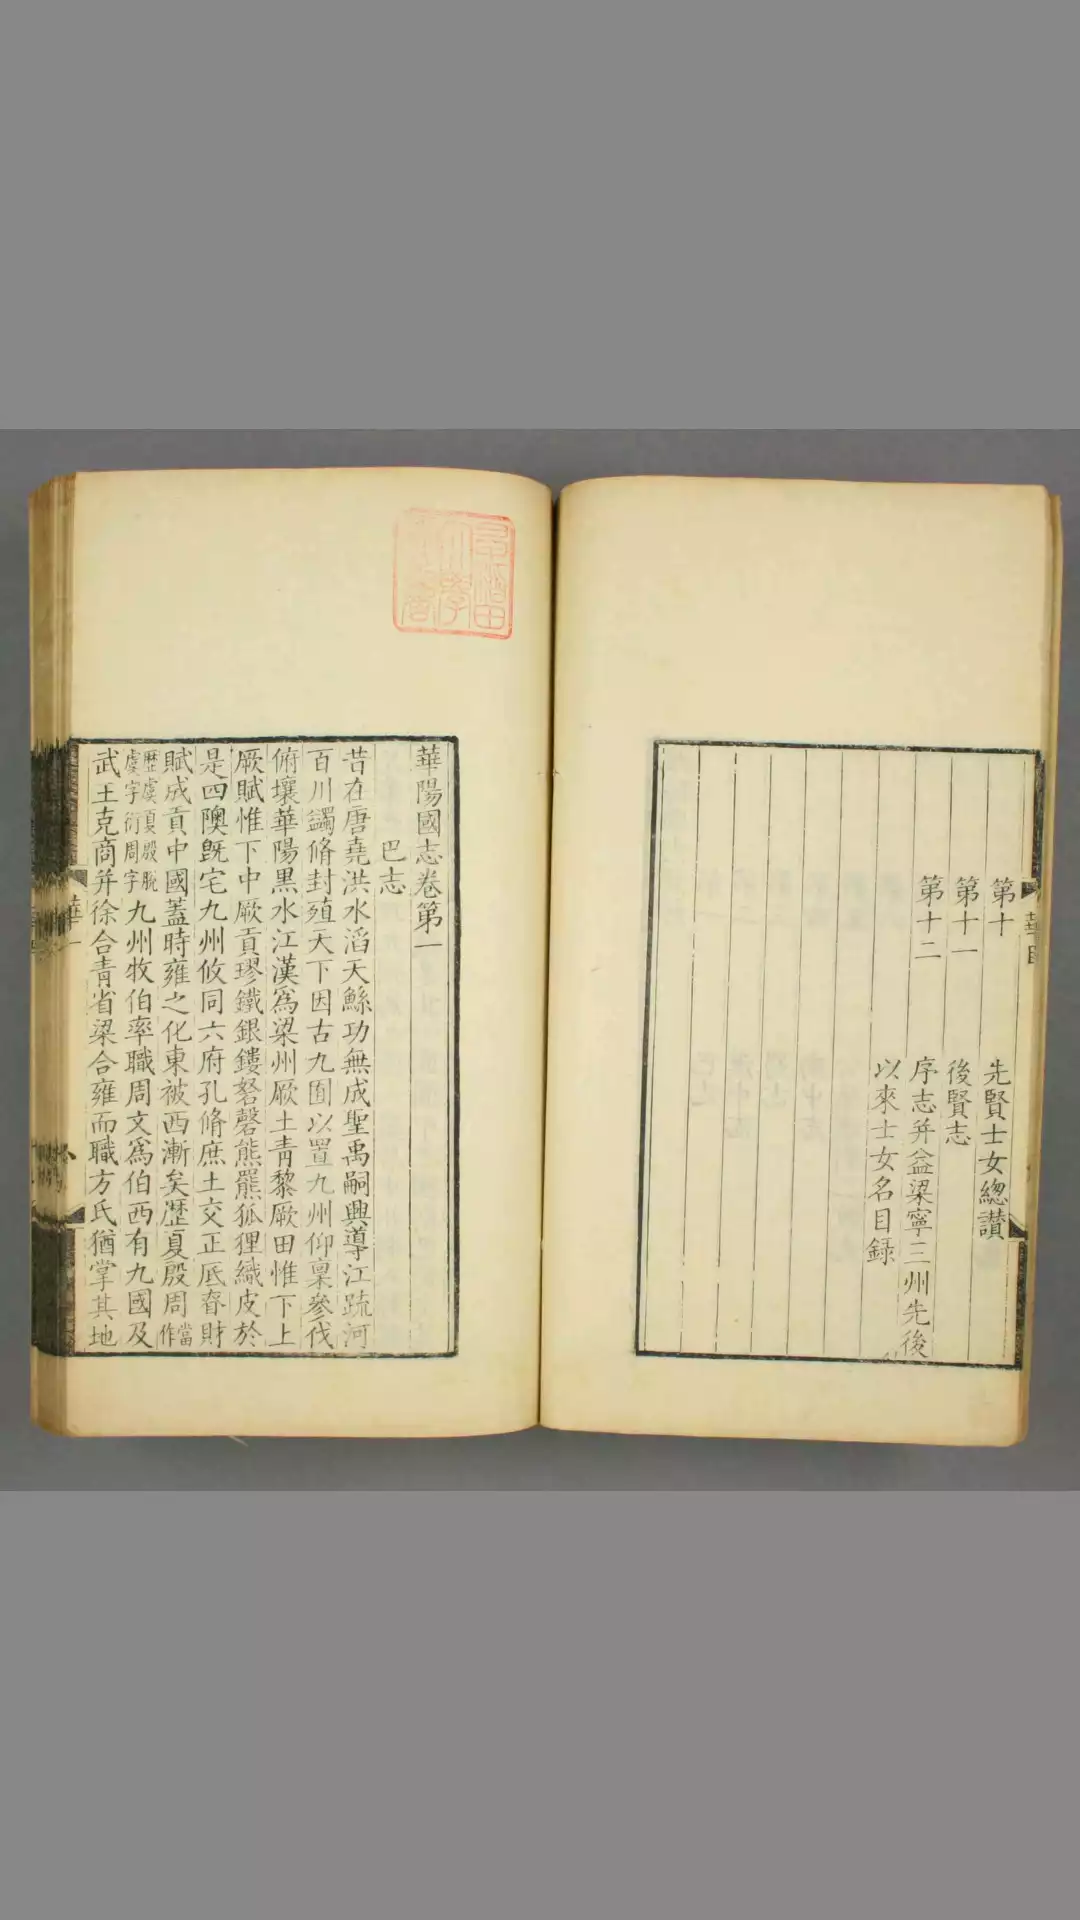 第十 先賢士女總讃
第十一 後賢志
第十二 序志并益梁寧三州先後
以來士女名目録
華陽國志卷第一
巴志
昔在唐堯洪水滔天鯀功無成聖禹嗣興導江疏河
百川蠲脩封殖天下因古九囿以置九州仰稟參伐
俯壤華陽黑水江漢爲梁州厥土青黎厥田惟下上
厥賦惟下中厥貢璆鐵銀鏤砮磬熊羆狐狸織皮於
是四隩旣宅九州攸同六府孔脩庶土交正厎眘財
賦成貢中國蓋時雍之化東被西漸矣歷夏殷周當作
歷虞夏殷脫虞字衍周字九州牧伯率職周文爲伯西有九國及
武王克商并徐合青省梁合雍而職方氏猶掌其地
華一